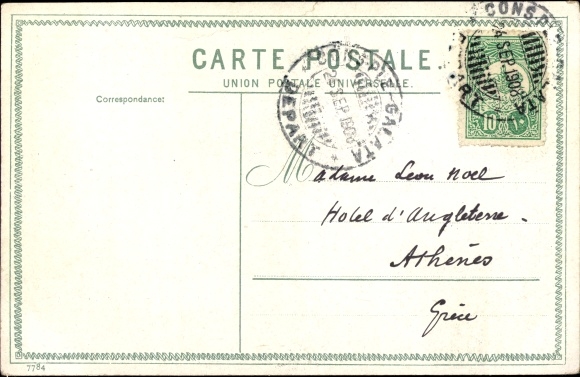 CARTE POSTALE.
UNION POSTALE UNIVERSELLE.
Correspondance:
CONSP
SEP 1908
GALATA
DEPART
SEP 1908
GALATA
DEPART
10
Madame Leon Noel
Hotel d'Angleterre.
Athènes
Grèce
7784